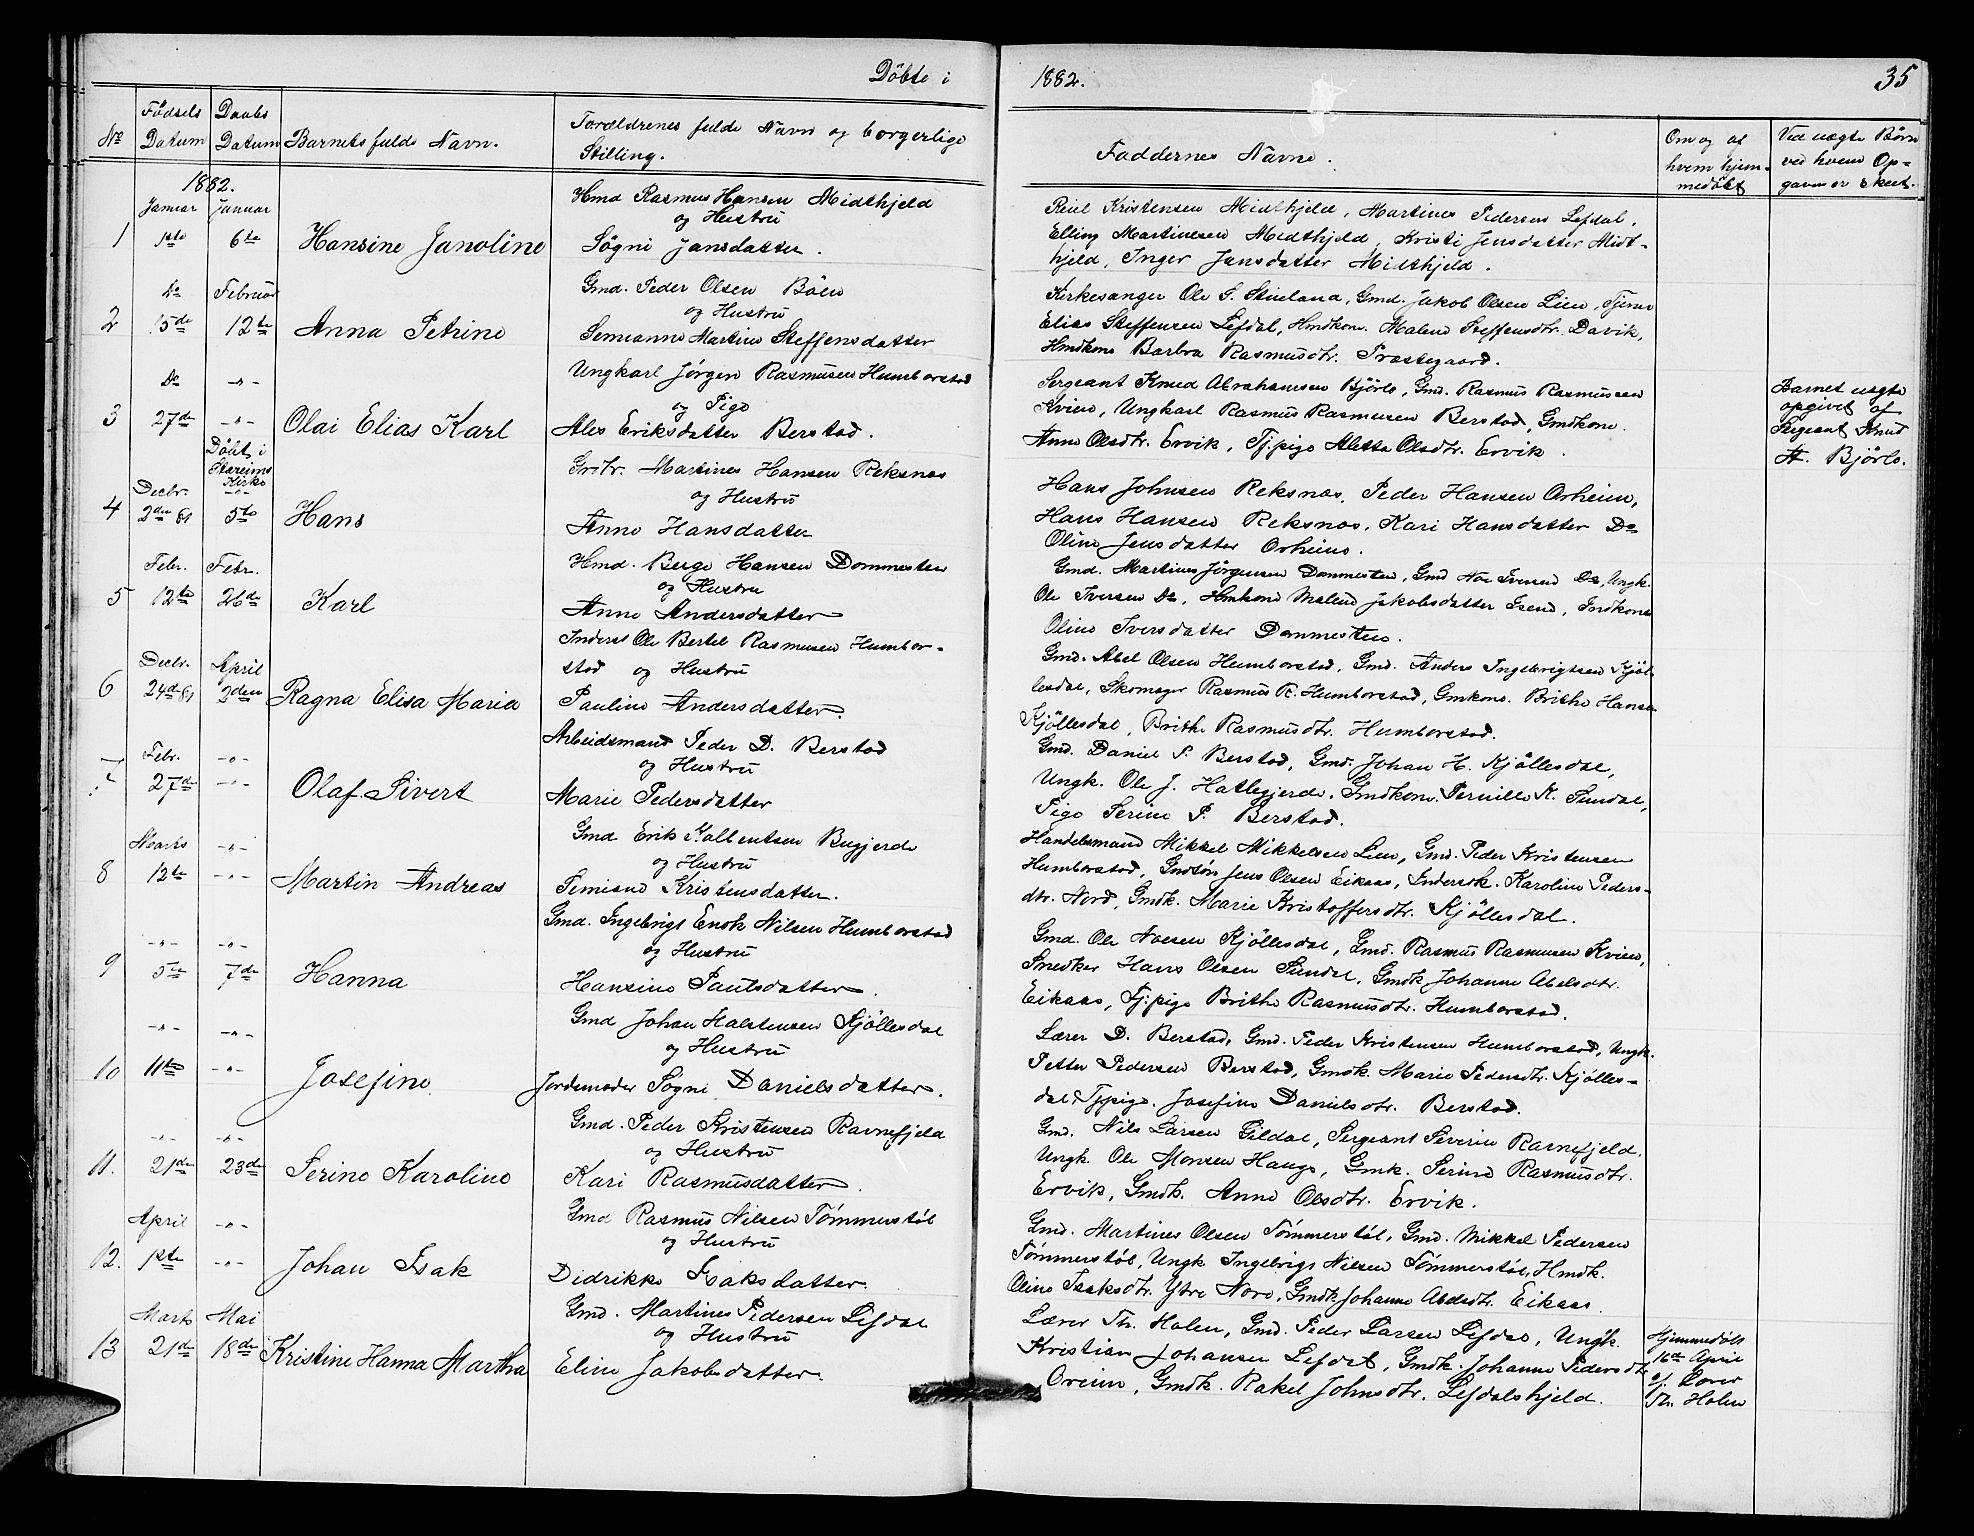 Döbte i 1882. 35
No
Födsels Datum
Daabs Datum
Barnets fulde Navn.
Forældrenes fulde Navn og borgerlige Stilling.
Faddernes Navne.
Om og af hvem hjemmedöbt
Ved uægte Børn ved hvem Opgaven er skeet.
1882.
Januar Januar
1 1ste 6te Hansine Janoline
Hmd Rasmus Hansen Midthjeld
og Hustru
Søgni Jansdatter.
Kristensen Midthjeld, Martines Pedersen Lefdal,
Elling Martinesen Midthjeld, Kristi Jensdatter Midt-
hjeld, Inger Jansdatter Midthjeld.
Do Februar
2 15de 12te Anna Petrine
Gmd. Peder Olsen Böen
og Hustru
Semianne Martine Steffensdatter
Kirkesanger Ole S. Gmd. Jakob Olsen Lien, Tjener
Elias Steffensen Lefdal, Hmdkone. Malene Steffensdtr. Davik,
Hmdkone Barbra Rasmusdtr. Præstegaard.
Do -"-
3 27de -"- Olai Elias Karl
Ungkarl Jörgen Rasmusen Humborstad
og Pige
Ales Eriksdatter Berstad.
Sergeant Knud Abrahamsen Bjørlo, Gmd. Rasmus Rasmussen
Kvien, Ungkarl Rasmus Rasmusen Berstad, Gmdkone.
Anne Olsdtr. Ervik, Tj.pige Aletta Olsdtr. Ervik.
Barnet uægte
opgivet af
Sergeant Knud
A. Bjørlo.
Döbt i
Stareims
Kirke
Decbr. -"-
4 2den 81 5te Hans
Martines Hansen Reksnæs
og Hustru
Anne Hansdatter
Hans Johnsen Reksnæs, Peder Hansen Orheim,
Hans Hansen Reksnæs, Kari Hansdatter Do
Oline Jensdatter Orheim.
Febr. Febr.
5 12te 26de Karl
Hmd. Berge Hansen Dommesten
og Hustru
Anne Andersdatter
Gmd. Martines Jörgensen Dommesten, Gmd Noe Iversen Do, Ungk.
Ole Iversen Do, Hmkone Malene Jakobsdatter Isene, Indkone
Oline Iversdatter Dommesten.
Decbr. April
6 24de 81 2den Ragna Elisa Maria
Inderst Ole Bertel Rasmusen Humbor-
stad og Hustru
Pauline Andersdatter.
Gmd. Abel Olsen Humborstad, Gmd. Anders Ingebrigtsen Kjöl-
lesdal, Skomager Rasmus R. Humborstad, Gmkone. Brithe Hanse
Kjöllesdal, Brithe Rasmusdtr. Humborstad.
Febr. -"-
7 27de -"- Olaf Sivert
Arbeidsmand Peder D. Berstad
og Hustru
Marie Pedersdatter
Gmd. Daniel P. Berstad, Gmd. Johan H. Kjöllesdal,
Ungk. Ole J. Hatlegjerde, Gmdkone. Pernille K. Sundal,
Pige Serine P. Berstad.
Marts -"-
8 12te -"- Martin Andreas
Gmd Erik Bugjerde
og Hustru
Semiane Kristensdatter.
Handelsmand Mikkel Mikkelsen Lien, Gmd. Peder Kristensen
Humborstad, Gmdsön Jens Olsen Eikaas, Indersk. Karoline Peders-
dtr. Nord, Gmdk. Marie Kristoffersdtr. Kjöllesdal.
-"- -"-
9 5te 7de Hanna
Gmd. Ingebrigt Enok Nilsen Humborstad
og Hustru
Hansine Paulsdatter.
Gmd. Ole Noesen Kjöllesdal, Gmd. Rasmus Rasmusen Kvien,
Snedker Hans Olsen Sundal, Gmdk Johanne Abelsdtr.
Eikaas, Tj.pige Brithe Rasmusdtr. Humborstad.
-"- -"-
10 11te -"- Josefine
Gmd Johan Halstensen Kjöllesdal
og Hustru
Jordemoder Søgni Danielsdatter.
Lærer D. Berstad, Gmd. Peder Kristensen Humborstad, Ungk.
Petter Pedersen Berstad, Gmdk. Marie Pedersdtr. Kjölles-
dal, Tj.pige. Josefine Danielsdtr. Berstad.
-"- -"-
11. 21de 23de Serine Karoline
Gmd. Peder Kristensen Ravnefjeld
og Hustru
Kari Rasmusdatter.
Gmd. Nils Larsen Gildal, Sergeant Severin Ravnefjeld,
Ungk. Ole Monsen Hauge, Gmk. Serine Rasmusdtr.
Ervik, Gmdk. Anne Olsdtr. Ervik.
April -"-
12. 1ste -"- Johan Isak
Gmd Rasmus Nilsen Tömmerstöl
og Hustru
Didrikke Isaksdatter.
Gmd. Martines Olsen Tömmerstöl, Gmd. Mikkel Pedersen
Tömmerstöl, Ungk Ingebrigt Nilsen Tömmerstöl, Hmdk.
Oline Isaksdtr. Ytre Nore, Gmdk Johanne Abelsdtr. Eikaas.
Marts Mai
13 21de 18de Kristine Hanna Martha
Gmd. Martines Pedersen Lefdal
og Hustru
Eline Jakobsdatter.
Lærer Th. Holen, Gmd. Peder Larsen Lefdal, Ungk.
Kristian Johansen Lefdal, Gmdk. Johanne Pedersdtr
Oreim, Gmdk. Rakel Johnsdtr. Lefdalshjeld.
Hjemmedöbt
16de April
af Lærer
Th. Holen